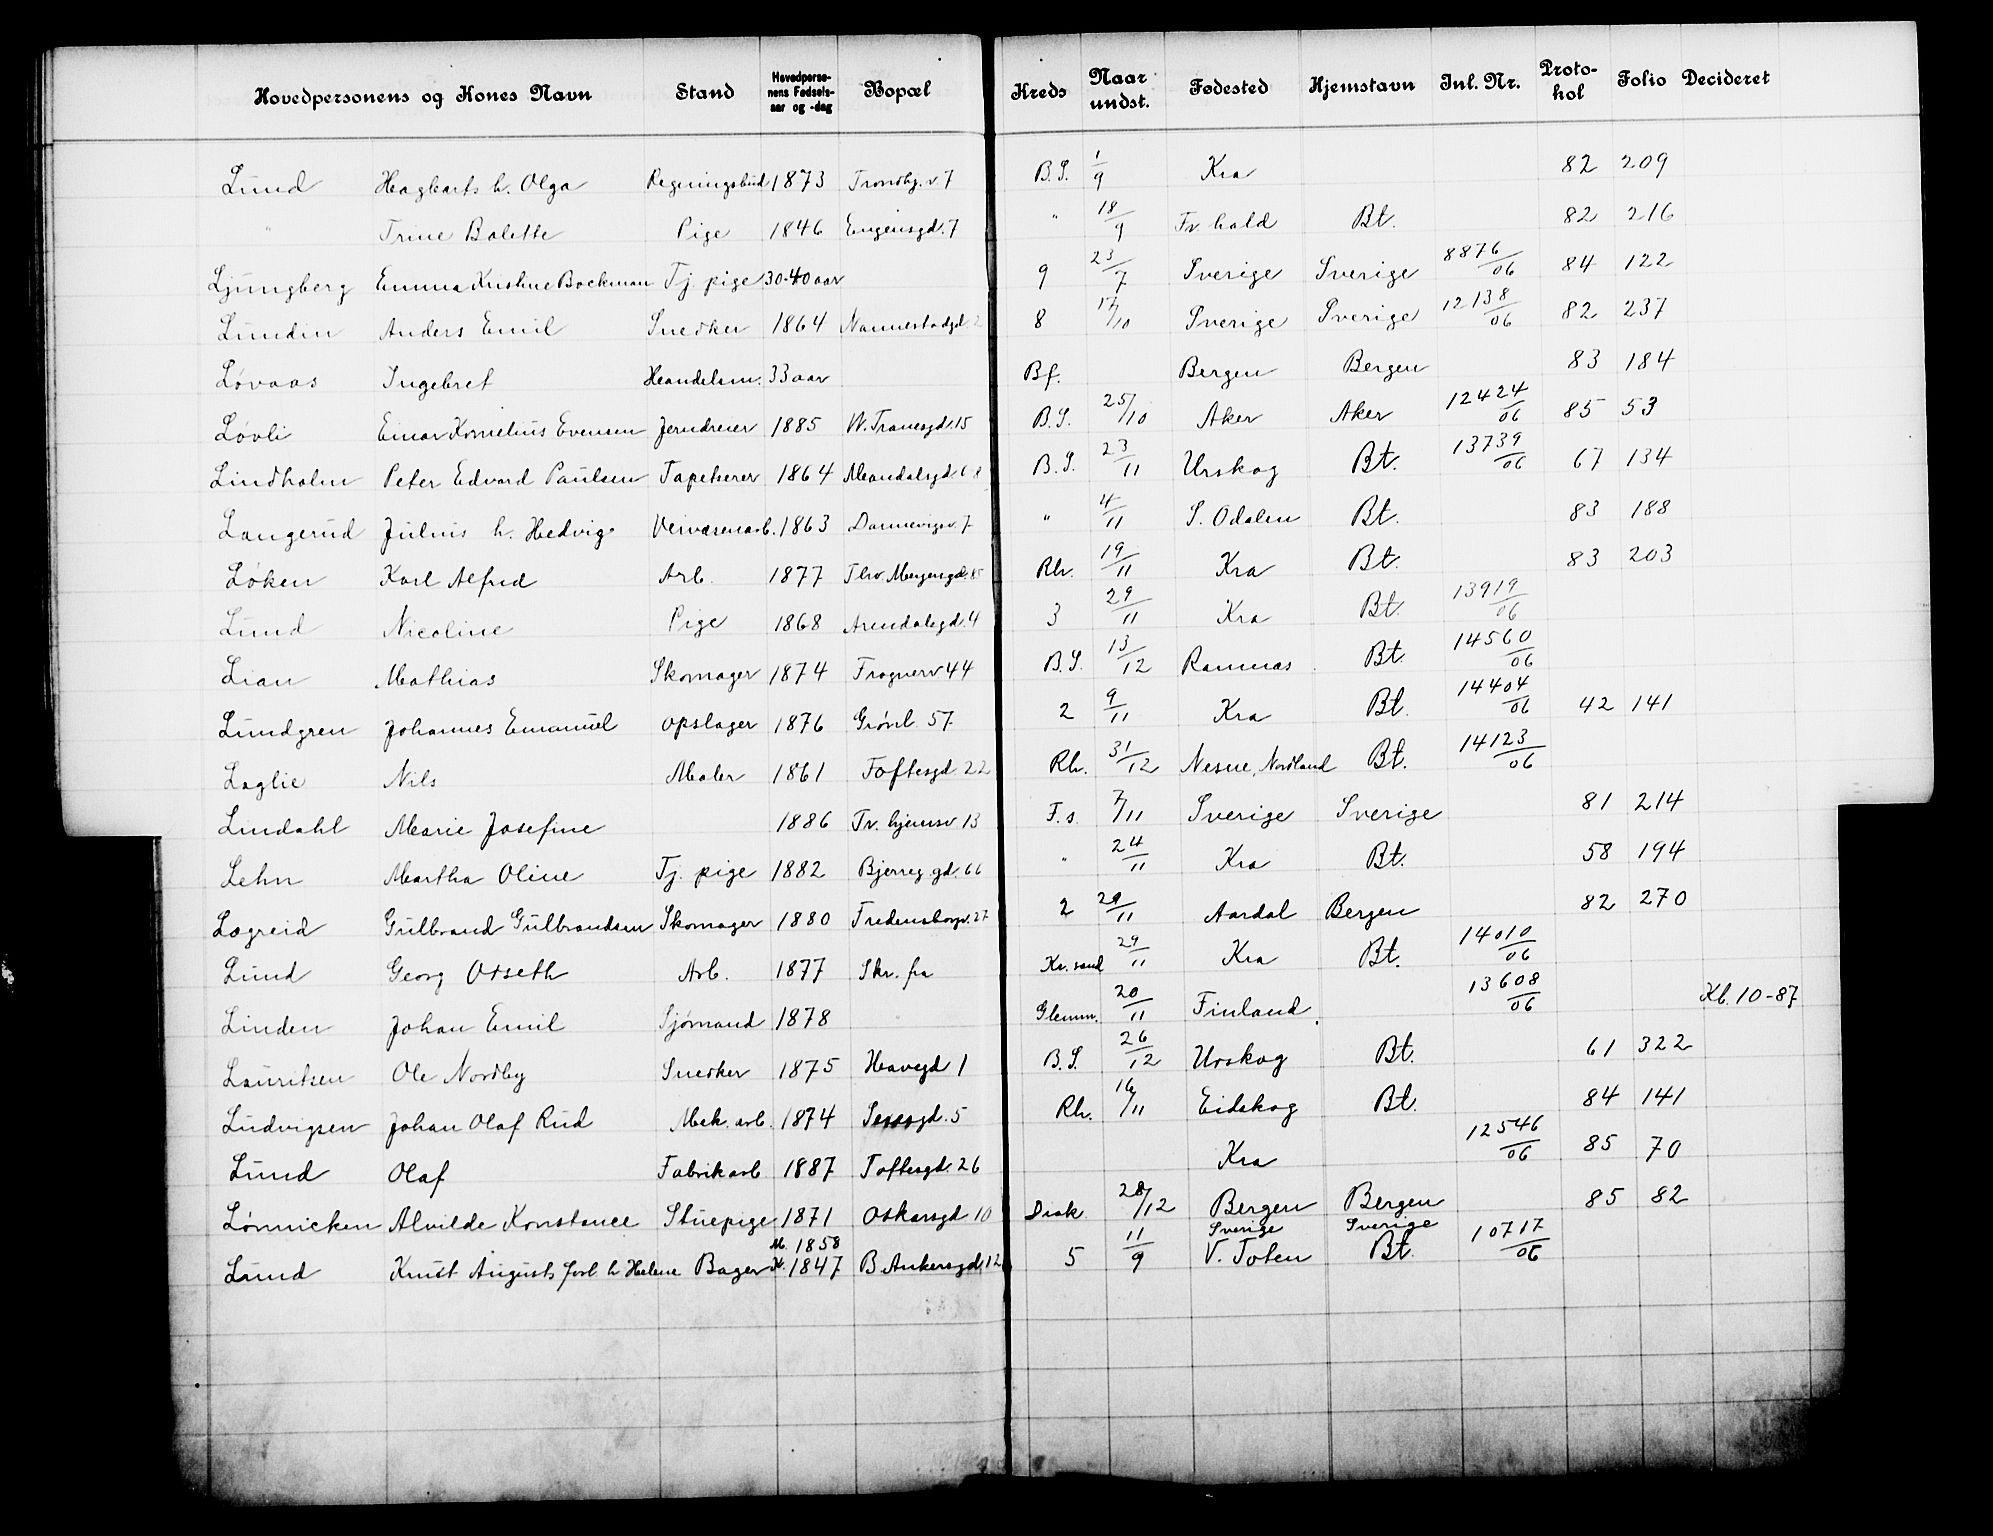 Hovedpersonens og Kones Navn Stand Hovedpersonens Fødselsaar og -dag Bopæl Kreds Naar undst. Fødested Hjemstavn Inl. Nr. Protokol Folio Decideret
Lund Hagbarts h. Olga Regningsbud 1873 Trondhj.v. 7 B.S. 1/9 Kra 82 209
" Trine Bolette Pige 1846 Eugeniesgd. 7 " 18/9 Fr.hald Bt. 82 216
Ljungberg Emma Kristine Bockman Tj. pige 30-40 aar 9 23/7 Sverige Sverige 8876/06 84 122
Lundin Anders Emil Snedker 1864 Nannestadgd. 2 8 17/10 Sverige Sverige 12138/06 82 237
Løvaas Ingebret Handelsm. 33 aar Bf. Bergen Bergen 83 184
Løvli Einar Kornelius Evensen Jerndreier 1885 W. Tranesgd. 15 B.S. 25/10 Aker Aker 12424/06 85 53
Lindholm Peter Edvard Paulsen Tapetserer 1864 Mandalsgd. 6 B.S. 23/11 Urskog Bt. 13739/06 67 134
Langerud Julius h. Hedvig Veivæsenarb. 1863 Dannevigsv. 7 " 4/11 S. Odalen Bt. 83 188
Løken Karl Alfred Arb. 1877 Thv. Meyersgd. 85 Rh. 19/11 Kra Bt. 83 203
Lund Nicoline Pige 1868 Arendalsgd. 4 3 29/11 Kra Bt. 13919/06
Lian Mathias Skomager 1874 Frognerv 44 B.S. 13/12 Ramnæs Bt. 14560/06
Lundgren Johannes Emanuel opslager 1876 Grønl. 57 2 9/11 Kra Bt. 14404/06 42 141
Laglie Nils Maler 1861 Toftesgd. 22 Rh. 31/12 Nesne, Nordland Bt. 14123/06
Lindahl Marie Josefine 1886 Tv. hjemsv 13 F.s. 7/11 Sverige Sverige 81 214
Lehn Martha Oline Tj. pige 1882 Bjerreg.gd. 66 " 24/11 Kra Bt. 58 194
Lægreid Gulbrand Gulbrandsen Skomager 1880 Fredensborgv. 27 2 29/11 Aardal Bergen 82 270
Lund Georg Orseth Arb. 1877 Skr. fra Kr.sand 29/11 Kra Bt. 14010/06
Linden Johan Emil Sjømand 1878 Glemm. 20/11 Finland 13608/06 Kb. 10-87
Lauritsen Ole Nordby Snedker 1875 Havegd 1 B.S. 26/12 Urskog Bt. 61 322
Ludvigsen Johan Olaf Rud Mek. arb. 1874 5 Rh. 16/11 Eidskog Bt. 84 141
Lund Olaf Fabrikarb 1887 Toftesgd. 26 Kra 12546/06 85 70
Lønnicken Alvilde Konstance Stuepige 1871 Oskarsgd 10 Diak. 28/12 Bergen Bergen 85 82
Lund Knut Augusts forl. h Helene Bager M. 1858 K. 1847 B Ankersgd. 12 5 11/9 Sverige V. Toten Sverige Bt. 10717/06